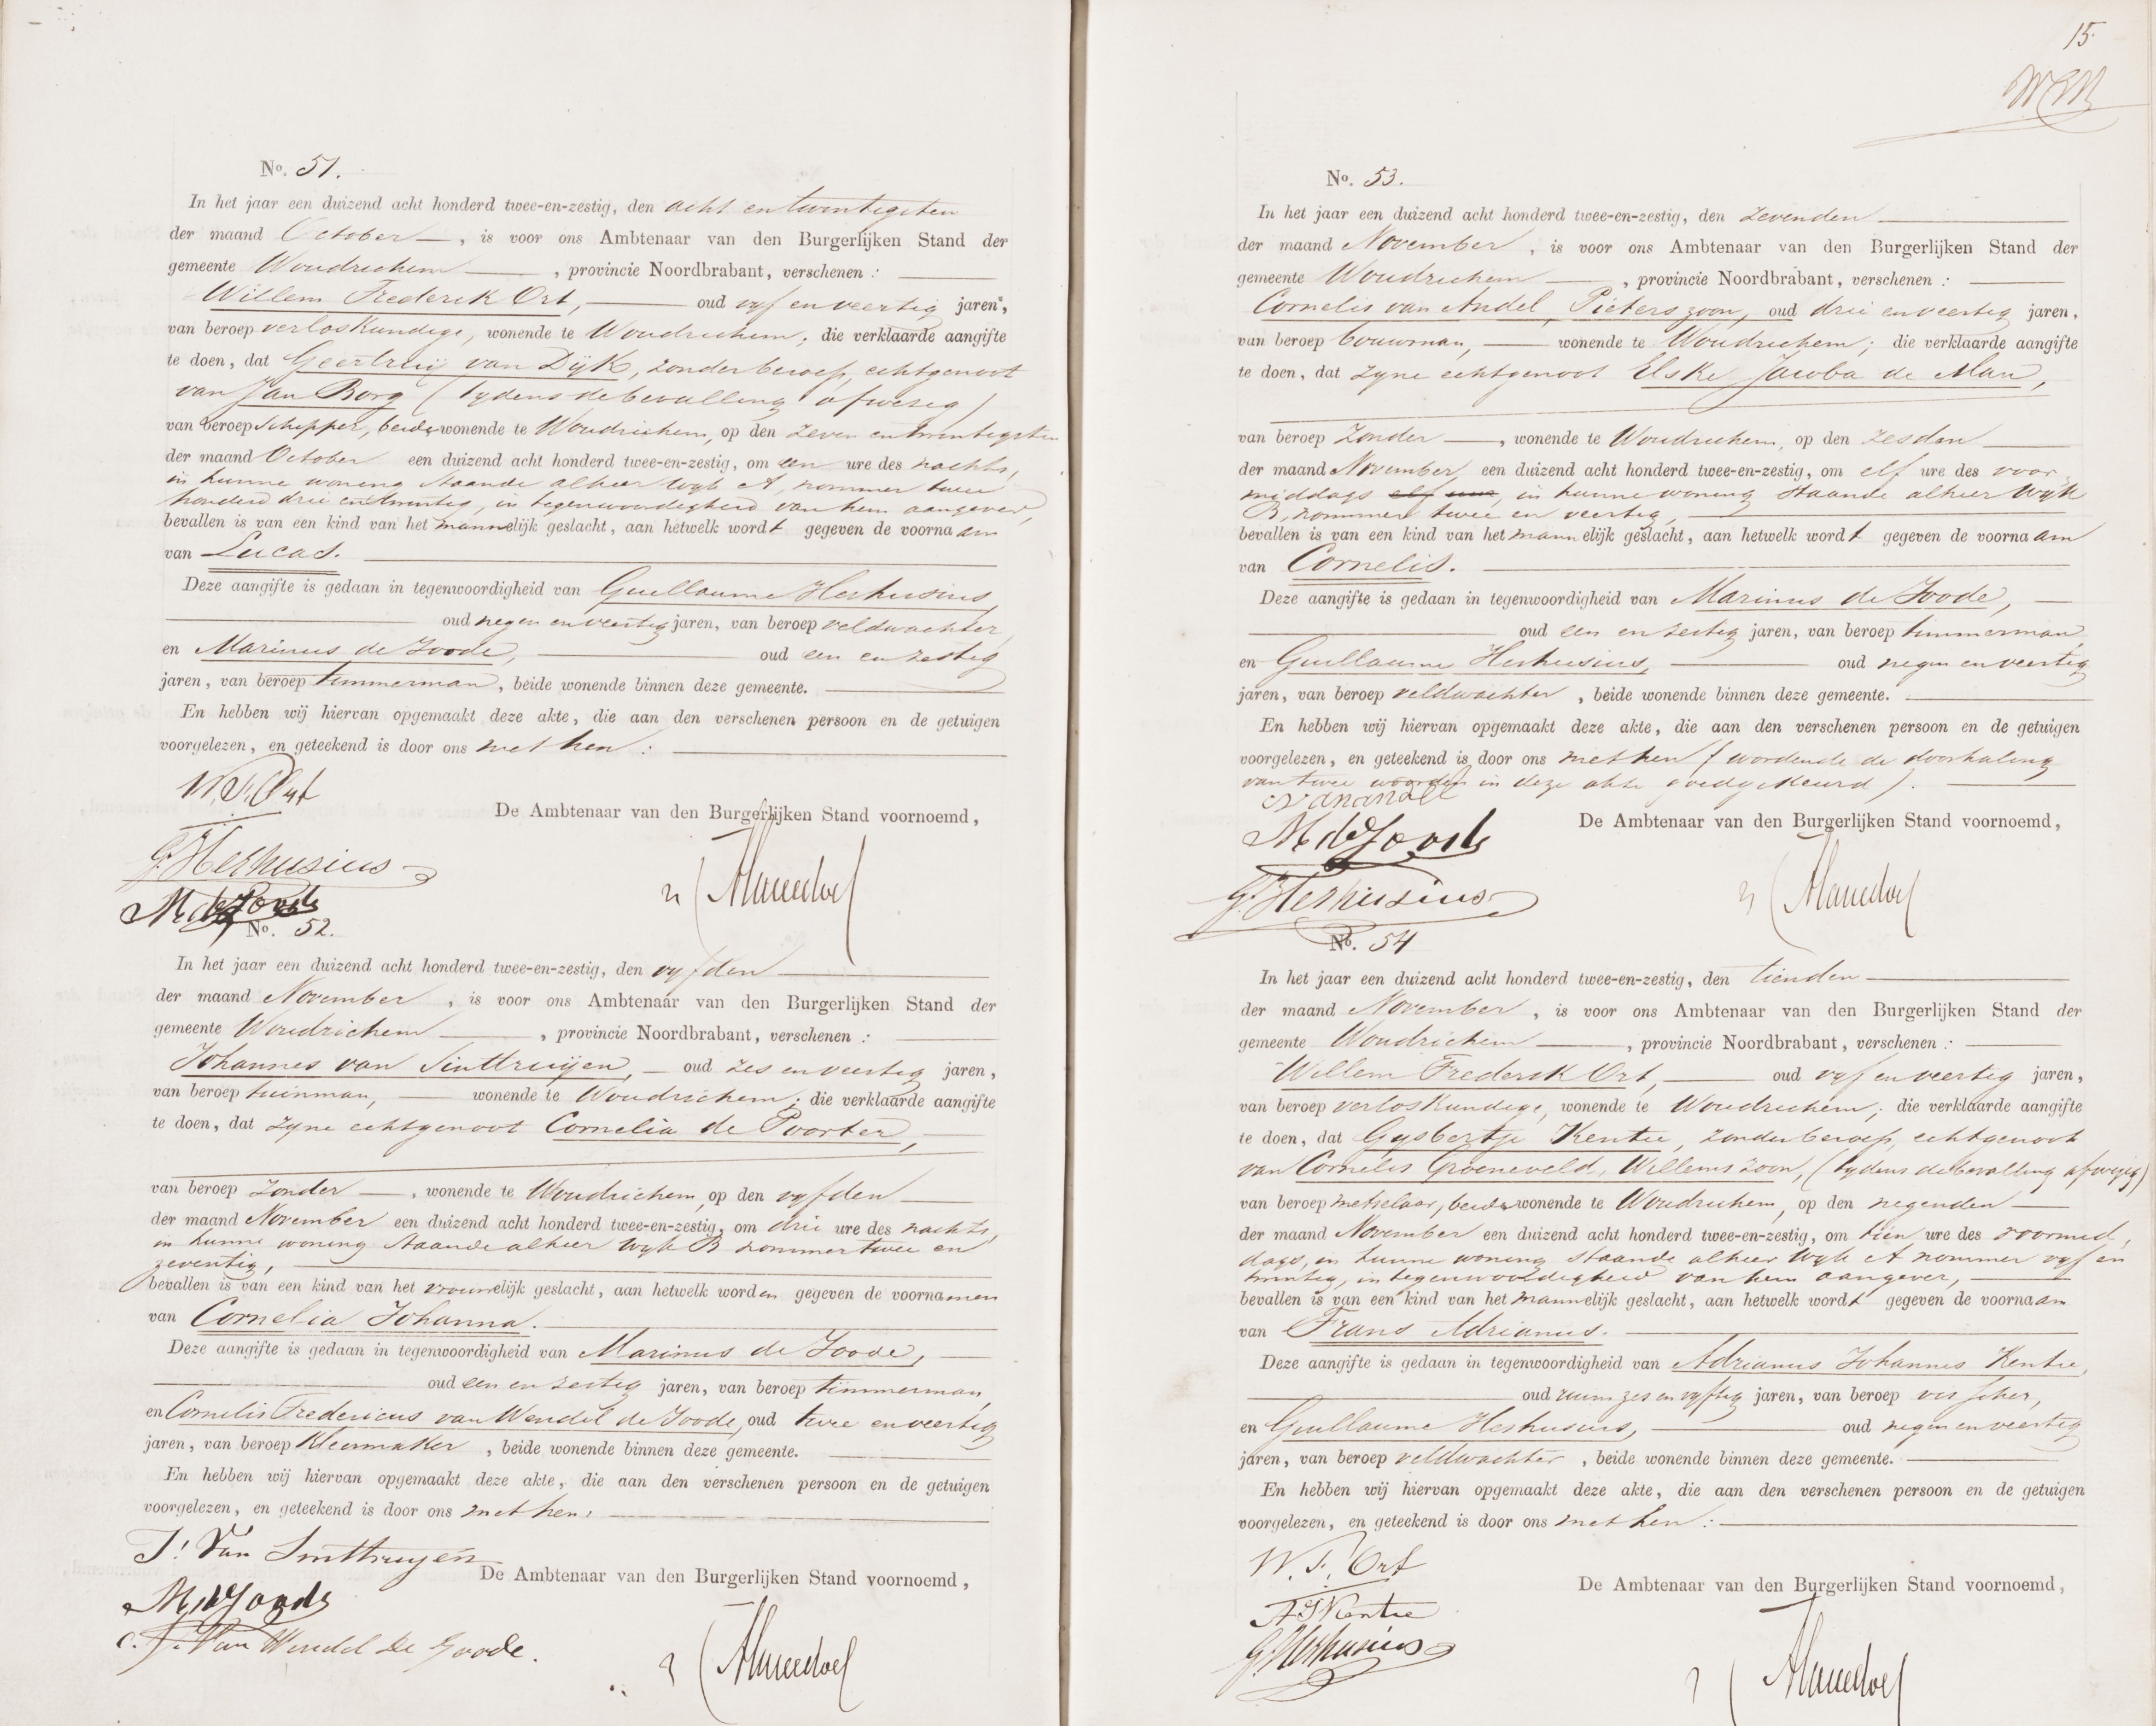 No. 51.
In het jaar een duizend acht honderd twee-en-zestig, den acht en twintigsten
der maand October, is voor ons Ambtenaar van den Burgerlijken Stand der
gemeente Woudrichem, provincie Noordbrabant, verschenen:
Willem Frederik Ort, oud vyf en veertig jaren,
van beroep verloskundige, wonende te Woudrichem; die verklaarde aangifte
te doen, dat Geertruij van Dijk, zonder beroep, echtgenoot
van Jan Borg (tydens de bevalling afwezig)
van beroep Schipper, beide wonende te Woudrichem, op den zeven en twintigsten
der maand October een duizend acht honderd twee-en-zestig, om een ure des nachts,
in hunne woning staande alhier wyk A, nommer twee
honderd drie en twintig, in tegenwoordigheid van hem aangever,
bevallen is van een kind van het mannelijk geslacht, aan hetwelk wordt gegeven de voornaam
van Lucas.
Deze aangifte is gedaan in tegenwoordigheid van Guillaume Heshusius,
oud negen en veertig jaren, van beroep veldwachter,
en Marinus de Joode, oud een en zestig
jaren, van beroep timmerman, beide wonende binnen deze gemeente.
En hebben wij hiervan opgemaakt deze akte, die aan den verschenen persoon en de getuigen
voorgelezen, en geteekend is door ons met hen:
W. F. Ort
De Ambtenaar van den Burgerlijken Stand voornoemd,
G. Heshusius
M de Joode
No. 52.
In het jaar een duizend acht honderd twee-en-zestig, den vyfden
der maand November, is voor ons Ambtenaar van den Burgerlijken Stand der
gemeente Woudrichem, provincie Noordbrabant, verschenen:
Johannes van Sinttruijen, oud zes en veertig jaren,
van beroep tuinman, wonende te Woudrichem; die verklaarde aangifte
te doen, dat zyne echtgenoot Cornelia de Poorter,
van beroep zonder, wonende te Woudrichem, op den vyfden
der maand November een duizend acht honderd twee-en-zestig, om drie ure des nachts,
in hunne woning staande alhier wyk B nommer twee en
zeventig,
bevallen is van een kind van het vrouwelijk geslacht, aan hetwelk worden gegeven de voornamen
van Cornelia Johanna.
Deze aangifte is gedaan in tegenwoordigheid van Marinus de Joode,
oud een en zestig jaren, van beroep timmerman,
en Cornelis Fredericus van Wendel de Joode, oud twee en veertig
jaren, van beroep Kleermaker, beide wonende binnen deze gemeente.
En hebben wij hiervan opgemaakt deze akte, die aan den verschenen persoon en de getuigen
voorgelezen, en geteekend is door ons met hen:
J. Van Sinttruyen
De Ambtenaar van den Burgerlijken Stand voornoemd,
M de Joode
C. F. Van Wendel De Joode.
15
No. 53.
In het jaar een duizend acht honderd twee-en-zestig, den zevenden
der maand November, is voor ons Ambtenaar van den Burgerlijken Stand der
gemeente Woudrichem, provincie Noordbrabant, verschenen:
Cornelis van Andel, Pieterszoon, oud drie en veertig jaren,
van beroep bouwman, wonende te Woudrichem; die verklaarde aangifte
te doen, dat zyne echtgenoot Elske Jacoba de Man,
van beroep zonder, wonende te Woudrichem, op den zesden
der maand November, een duizend acht honderd twee-en-zestig, om elf ure des voor
middags elf uur, in hunne woning staande alhier Wyk
B, nommer twee en veertig,
bevallen is van een kind van het mannelijk geslacht, aan hetwelk wordt gegeven de voornaam
van Cornelis.
Deze aangifte is gedaan in tegenwoordigheid van Marinus de Joode,
oud een en zestig jaren, van beroep timmerman,
en Guillaume Heshusius, oud negen en veertig
jaren, van beroep veldwachter, beide wonende binnen deze gemeente.
En hebben wij hiervan opgemaakt deze akte, die aan den verschenen persoon en de getuigen
voorgelezen, en geteekend is door ons met hen (wordende de doorhaling
van twee woorden in deze akte goedgekeurd).
C van andel
De Ambtenaar van den Burgerlijken Stand voornoemd,
M de Joode
G. Heshusius
No. 54
In het jaar een duizend acht honderd twee-en-zestig, den tienden
der maand November, is voor ons Ambtenaar van den Burgerlijken Stand der
gemeente Woudrichem, provincie Noordbrabant, verschenen:
Willem Frederik Ort, oud vyf en veertig jaren,
van beroep verloskundige, wonende te Woudrichem; die verklaarde aangifte
te doen, dat Gysbertje Kentie, zonder beroep, echtgenoot
van Cornelis Groeneveld, Willemszoon, (tydens de bevalling afwezig)
van beroep metselaar, beide wonende te Woudrichem, op den negenden
der maand November een duizend acht honderd twee-en-zestig, om tien ure des voormid,
dags, in hunne woning staande alhier wyk A nommer vyf en
twintig, in tegenwoordigheid van hem aangever,
bevallen is van een kind van het mannelijk geslacht, aan hetwelk wordt gegeven de voornaam
van Frans Adrianus.
Deze aangifte is gedaan in tegenwoordigheid van Adrianus Johannes Kentie,
oud ruim zes en vyftig jaren, van beroep visscher,
en Guillaume Heshusius, oud negen en veertig
jaren, van beroep veldwachter, beide wonende binnen deze gemeente.
En hebben wij hiervan opgemaakt deze akte, die aan den verschenen persoon en de getuigen
voorgelezen, en geteekend is door ons met hen:
W. F. Ort
De Ambtenaar van den Burgerlijken Stand voornoemd,
A J Kentie
G. Heshusius